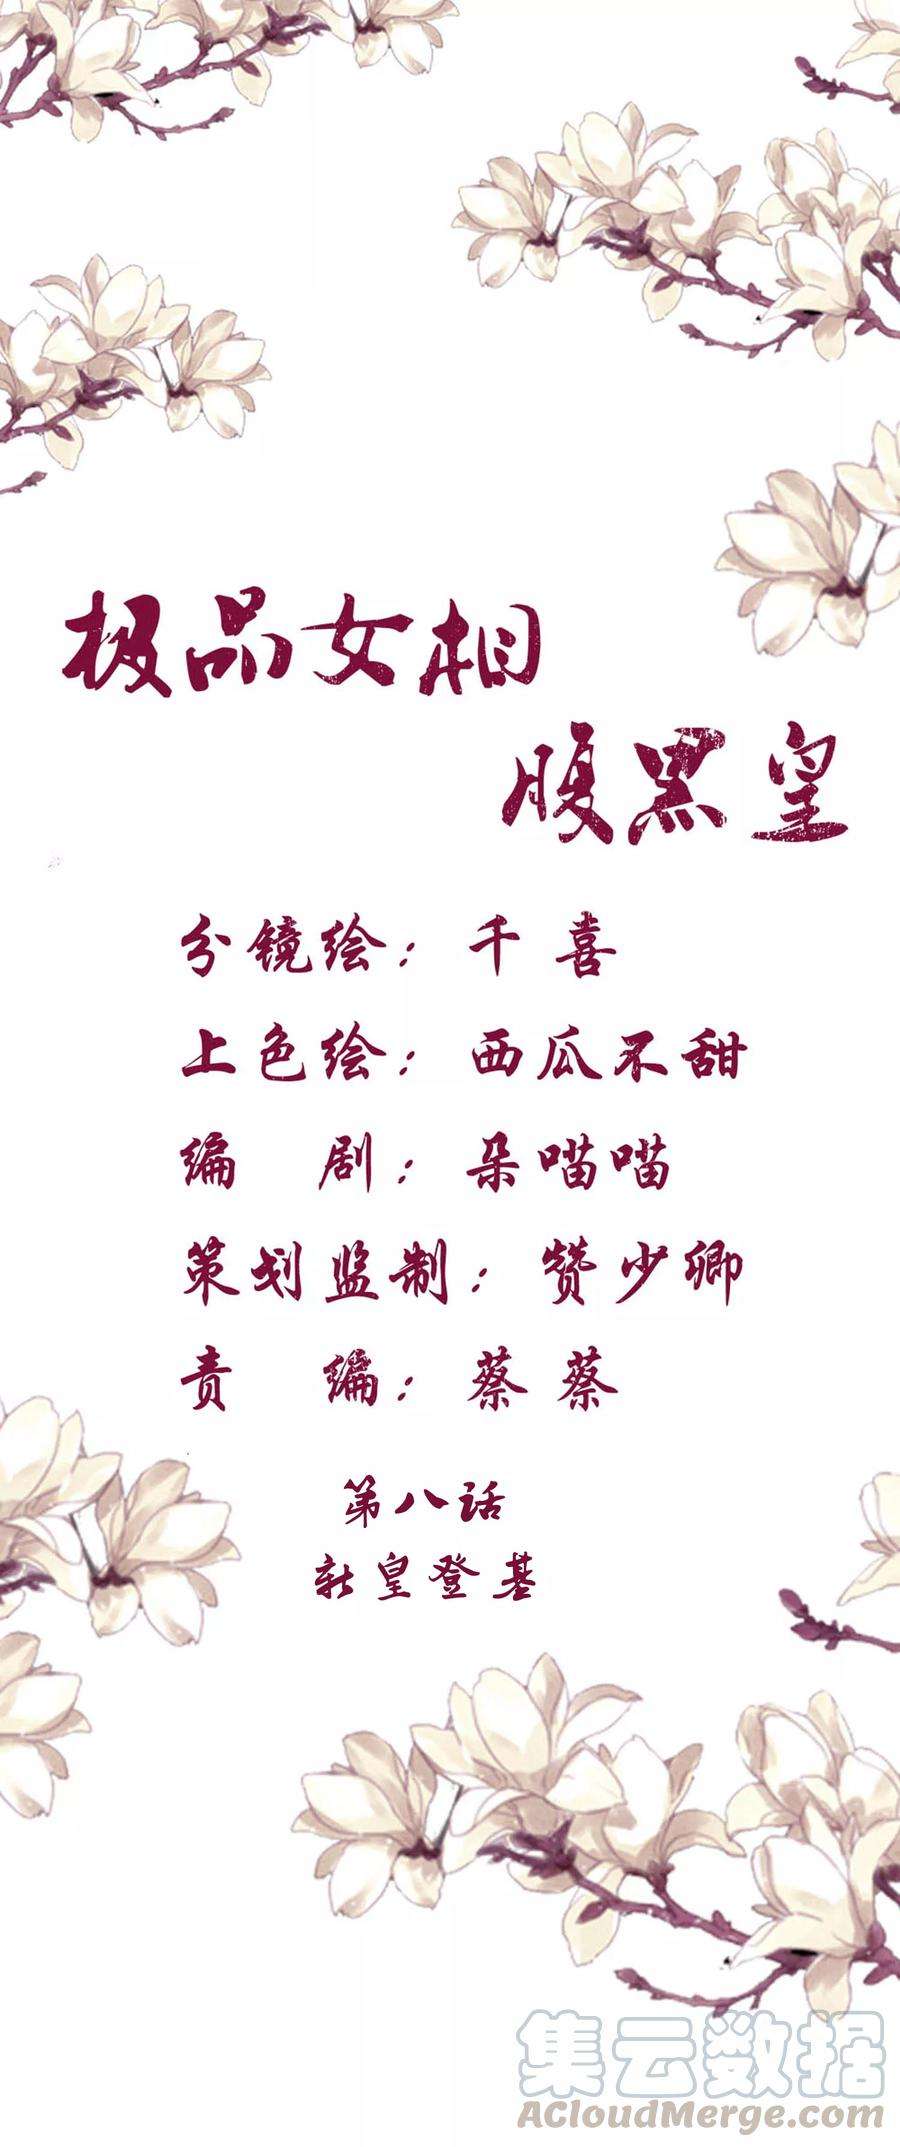 极品女相
腹黑皇
分镜绘：千喜
上色绘：西瓜不甜
编 剧：朵喵喵
策划监制：赞少卿
责 编：蔡蔡
第八话
新皇登基
集云数据
ACloudMerge.com